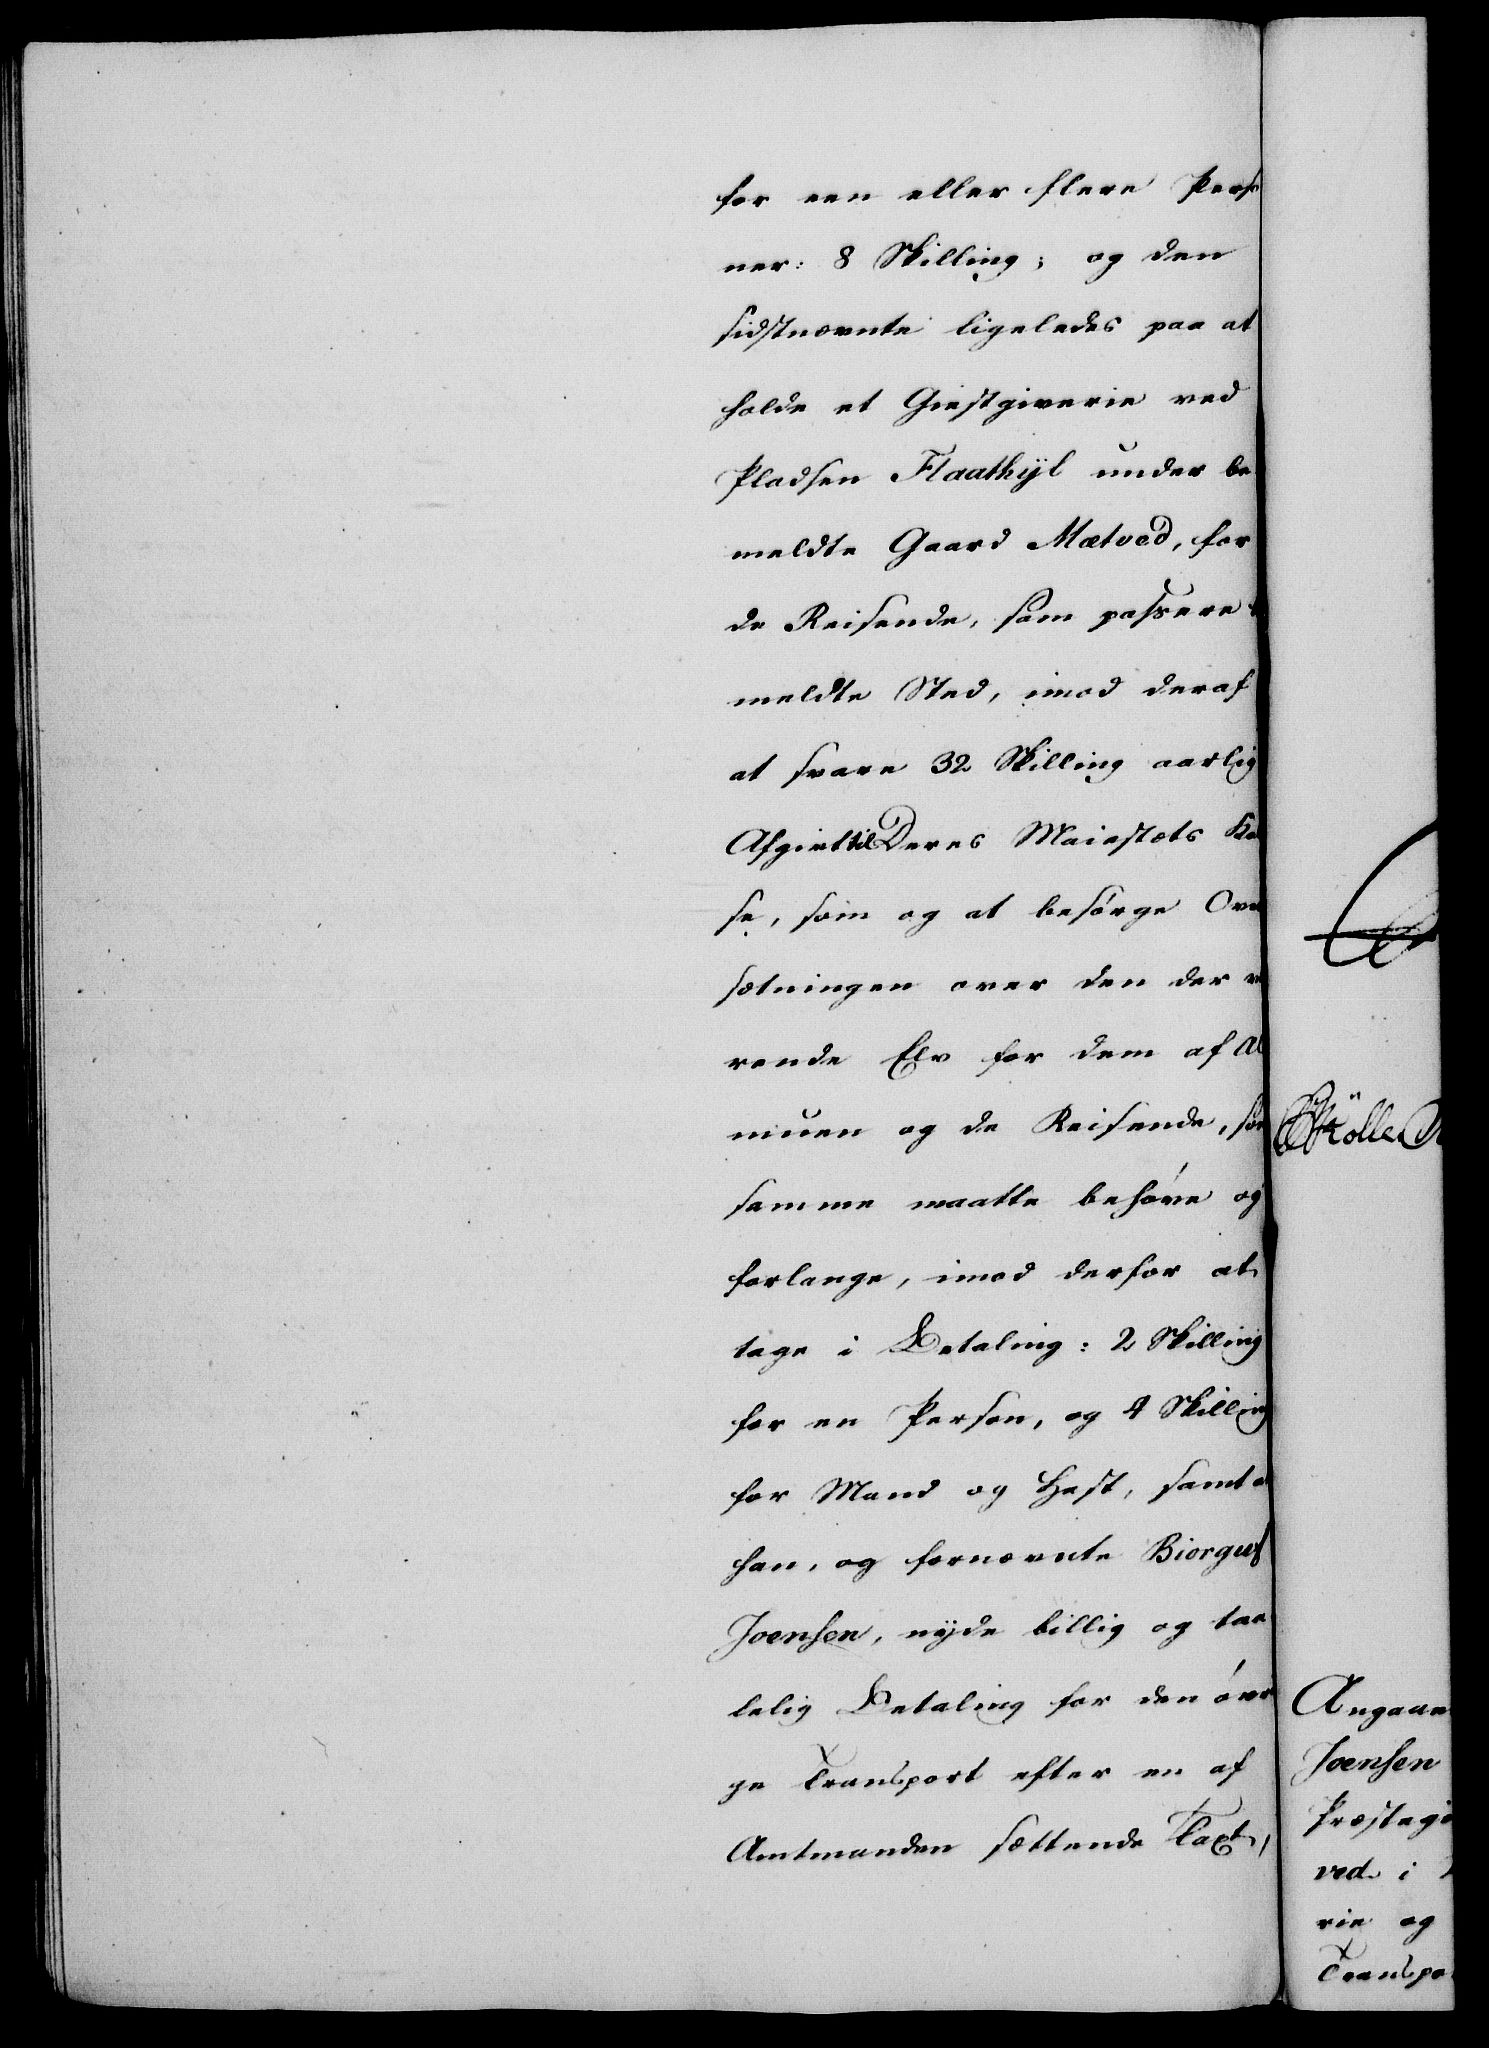 for een eller flere Perso
ner: 8 Skilling; og den
sidstnævnte ligeledes paa at
holde et Giestgiverie ved
Pladsen Flaathyl under be
meldte Gaard Mætved, for
de Reisende, som passere
meldte Sted, imod deraf
at svare 32 Skilling aarlig
Afgivt til Deres Maiestæts Ka
se, som og at besørge Over
sætningen over den der væ
rende Elv for dem af Al
muen og de Reisende, som
samme maatte behöve og
forlange, imod derfor at
tage i Betaling: 2 Skilling
for en Person, og 4 Skilling
for Mand og Hest, samt
han, og fornævnte Biorguf
Joensen, nyde billig og taa
lelig Betaling for den övri
ge Transport efter en af
Amtmanden sættende Taxt,
Angaaen
Joensen
Præstegi
ved i
rie og
Transpo